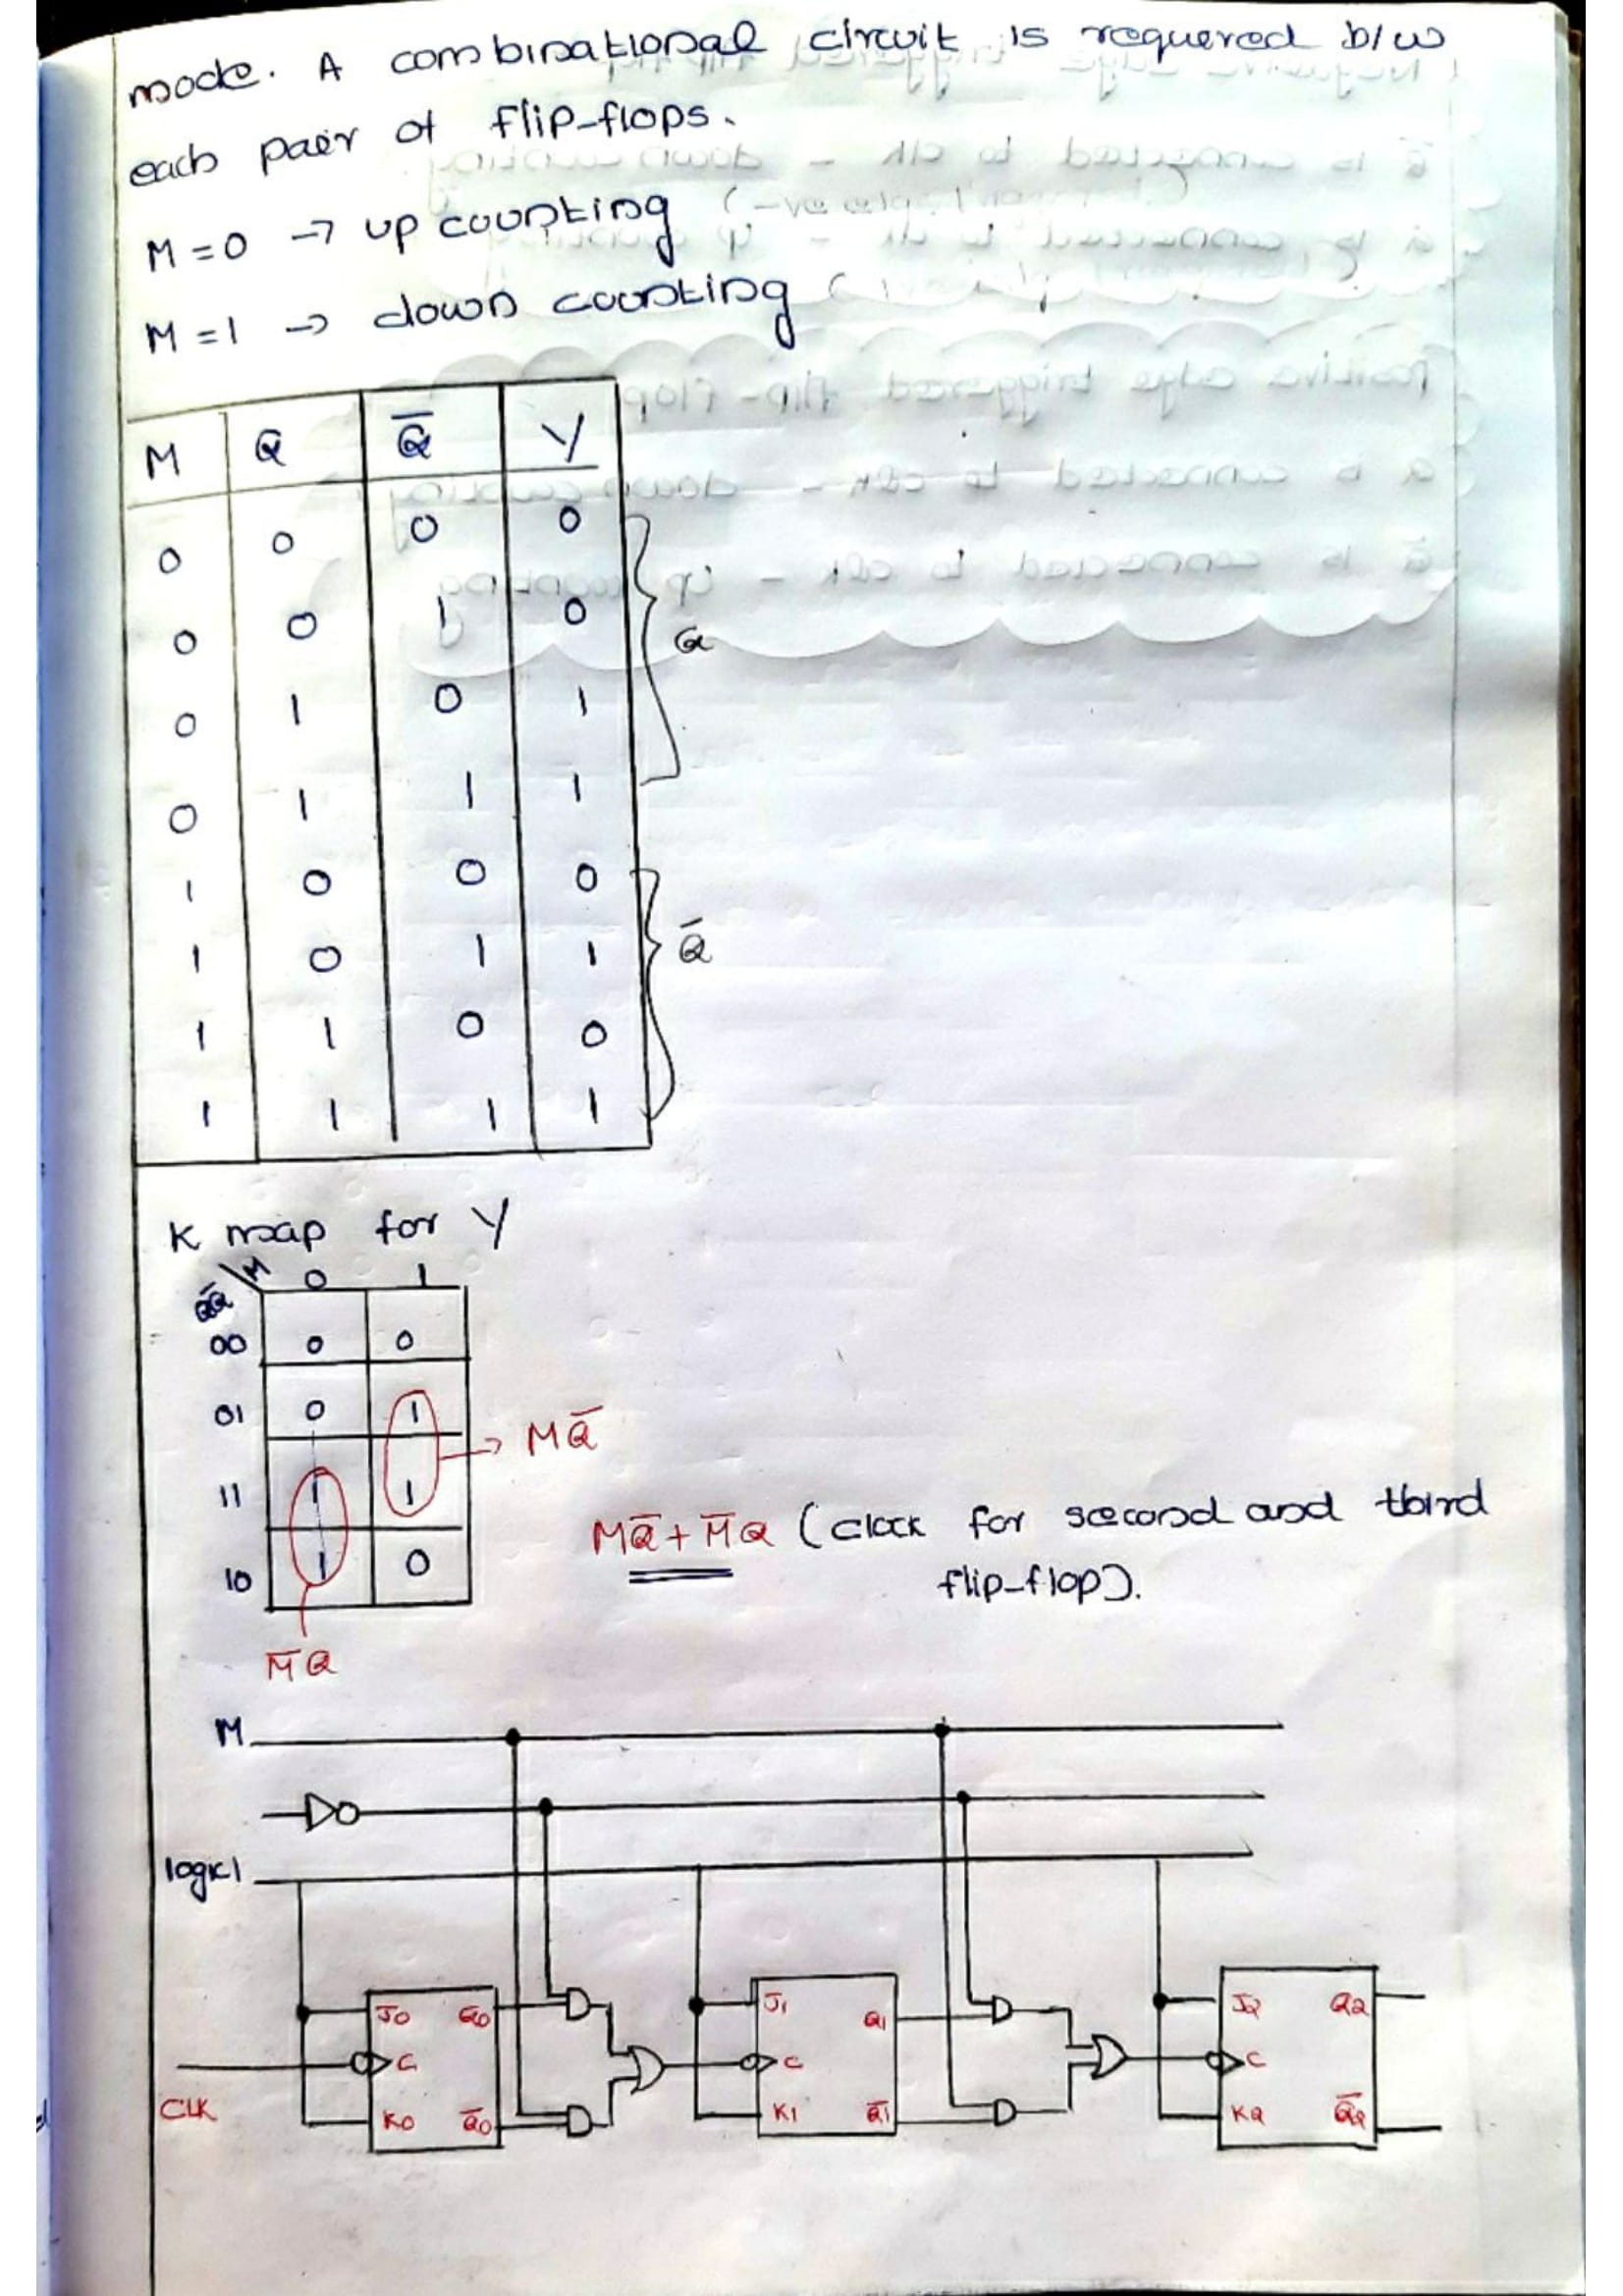 mode. A combinational circuit is requered b/w
each paeir of flip-flops.
M = 0 → up counting
M = 1 → down counting
M Q Q̅ Y
0 0 0 0
0 0 1 0
0 1 0 1
0 1 1 1
Q
1 0 0 0
1 0 1 1
1 1 0 0
1 1 1 1
Q̅
K map for Y
M 0 1
QQ̅
00 0 0
01 0 1
11 1 1
10 1 0
→ MQ̅
M̅Q
MQ̅ + M̅Q (clock for second and third
flip-flop).
M
logic 1
J0 Q0
C
K0 Q̅0
CLK
J1 Q1
C
K1 Q̅1
J2 Q2
C
K2 Q̅2